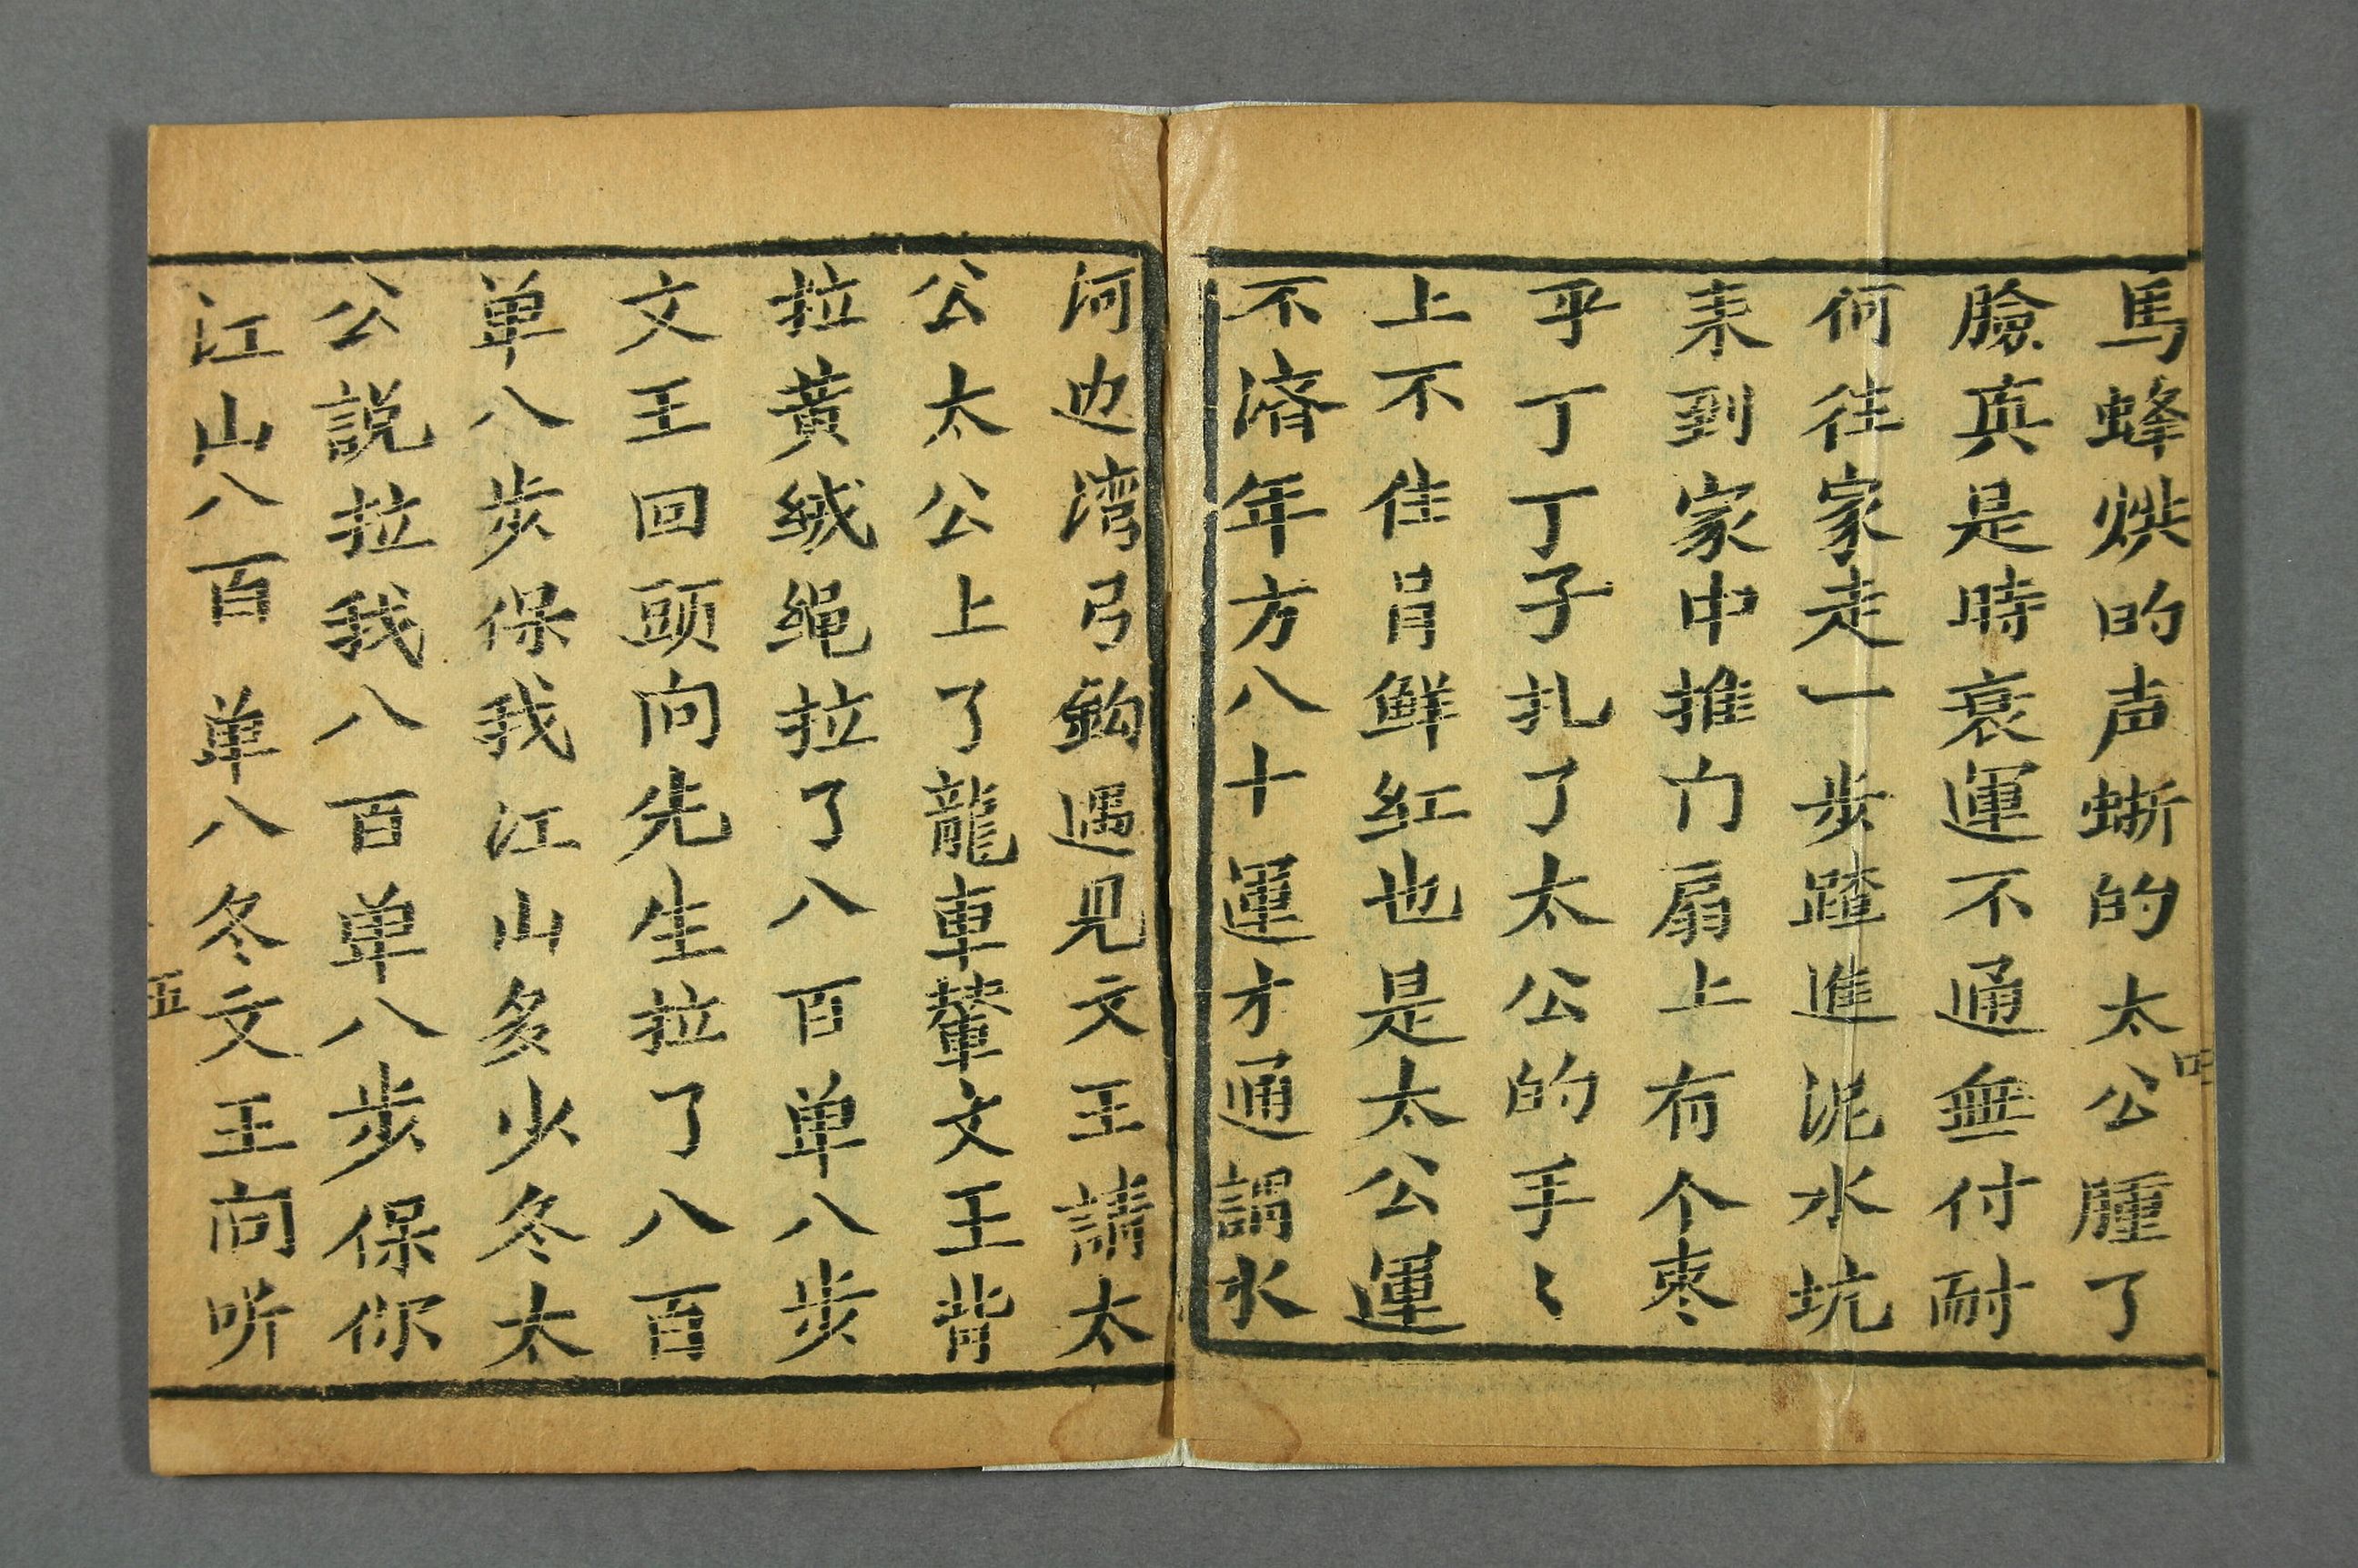 馬蜂烘的声蜥的太公腫了
臉真是時衰運不通無付耐
何往家走一步蹅進泥水坑
来到家中推门扇上有个枣
乎丁丁子扎了太公的手〻
上不住肙鲜红也是太公運
不濟年方八十運才通謂水
河边湾弓鈎遇見文王請太
公太公上了龍車輦文王背
拉黄絨绳拉了八百单八步
文王回頭向先生拉了八百
单八步保我江山多少冬太
公説拉我八百单八步保你
江山八百单八冬文王向听
五